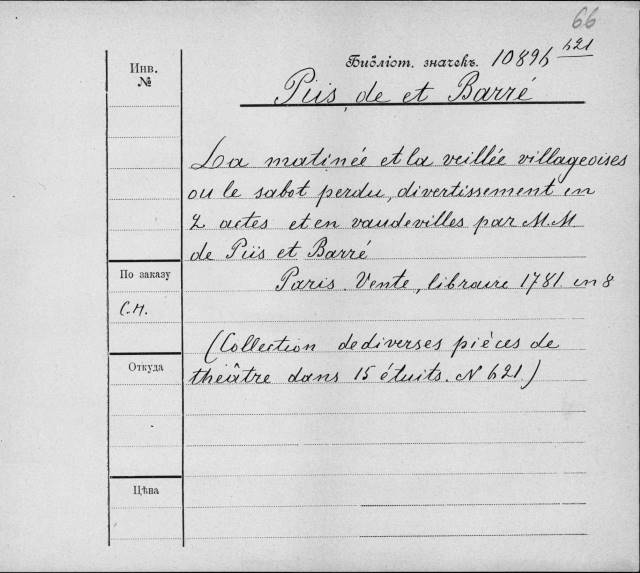 66
Инв.
№
Библіот. значекъ. 10896 621
Piis, de et Barré
La matinée et la veillée villageoises
ou le sabot perdu, divertissement en
2 actes et en vaudevilles par M.M.
de Piis et Barré
По заказу
Paris. Vente, libraire 1781. in 8
С.Н.
(Collection de diverses pièces de
Откуда
théâtre dans 15 étuits. N 621.)
Цѣна